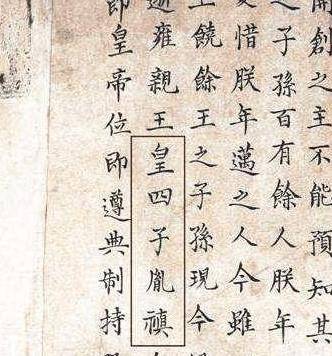 開創之主不能預知其
之子孫百有餘人朕年
惜朕年邁之人今雖
王饒餘王之子孫現今
雍親王皇四子胤禛
即皇帝位即遵典制持